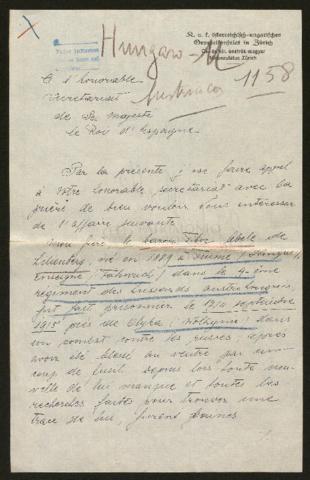 K. u. k. österreichisch-ungarisches
Generalkonsulat in Zürich
Hungaro-
1158
A l'honorable
Secrétariat
de Sa Majesté
le Roi d'Espagne.
Par la présente j'ose faire appel
à votre honorable secrétariat avec la
prière de bien vouloir vous intéresser
de l'affaire suivante.
Mon frère le baron Tibor Abele de
Lilienberg, né en 1889 à Fiume (Hongrie),
Enseigne (Fähnrich) dans le ème
régiment des hussards austro-hongrois,
fut fait prisonnier le septembre
1915 près de Olyka, Wolhynie, dans
un combat contre les russes, après
avoir été blessé au ventre par un
coup de fusil. Depuis lors toute nou-
velle de lui manque et toutes les
recherches faites pour trouver une
trace de lui, furent